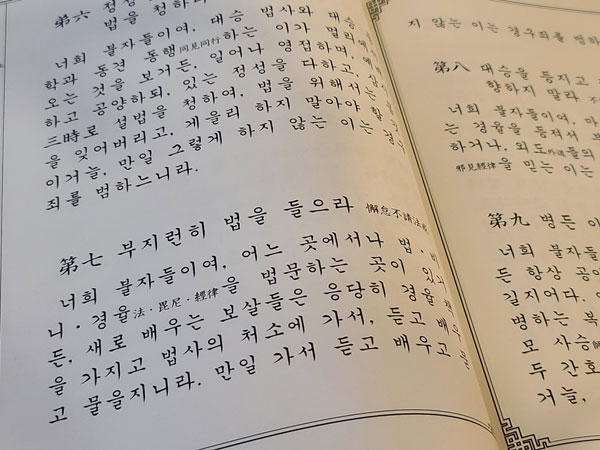 第六 정성
법을 청하라
너희 불자들이여, 대승 법사와 대승
학과 동견 동행同見同行하는 이가 멀리
오는 것을 보거든, 일어나 영접하며,
하고 공양하되, 있는 정성을 다하고,
三時로 설법을 청하여, 법을 위해서는
을 잊어버리고, 게을리 하지 말아야 할
이거늘, 만일 그렇게 하지 않는 이는 경구
죄를 범하느니라.
第七 부지런히 법을 들으라 懈怠不請法戒
너희 불자들이여, 어느 곳에서나 법·비
니·경율法·毘尼·經律을 법문하는 곳이 있
든, 새로 배우는 보살들은 응당히 경율
을 가지고 법사의 처소에 가서, 듣고 배
고 물을지니라. 만일 가서 듣고 배우고
지 않는 이는 경구죄를 범하
第八 대승을 등지고
향하지 말라
너희 불자들이여, 마
는 경율을 등져서
하거나, 외도外道들의
邪見經律을 믿는 이는
第九 병든 이
너희 불자들
든 항상 공
길지어다.
병하는 복
모 사승師
두 간호
거늘,